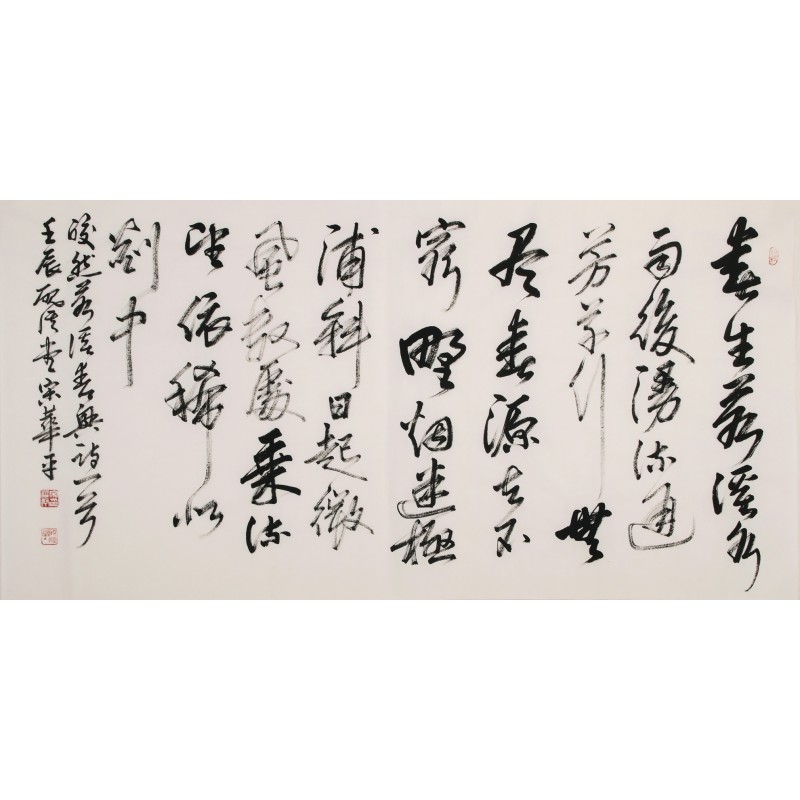 春生若溪水
雨後漫流通
芳草行無
尽春源去不
窮野烟迷極
浦斜日起微
風数處乘流
望依稀似
剡中
皎然若溪春興詩一首
壬辰堂宋華平